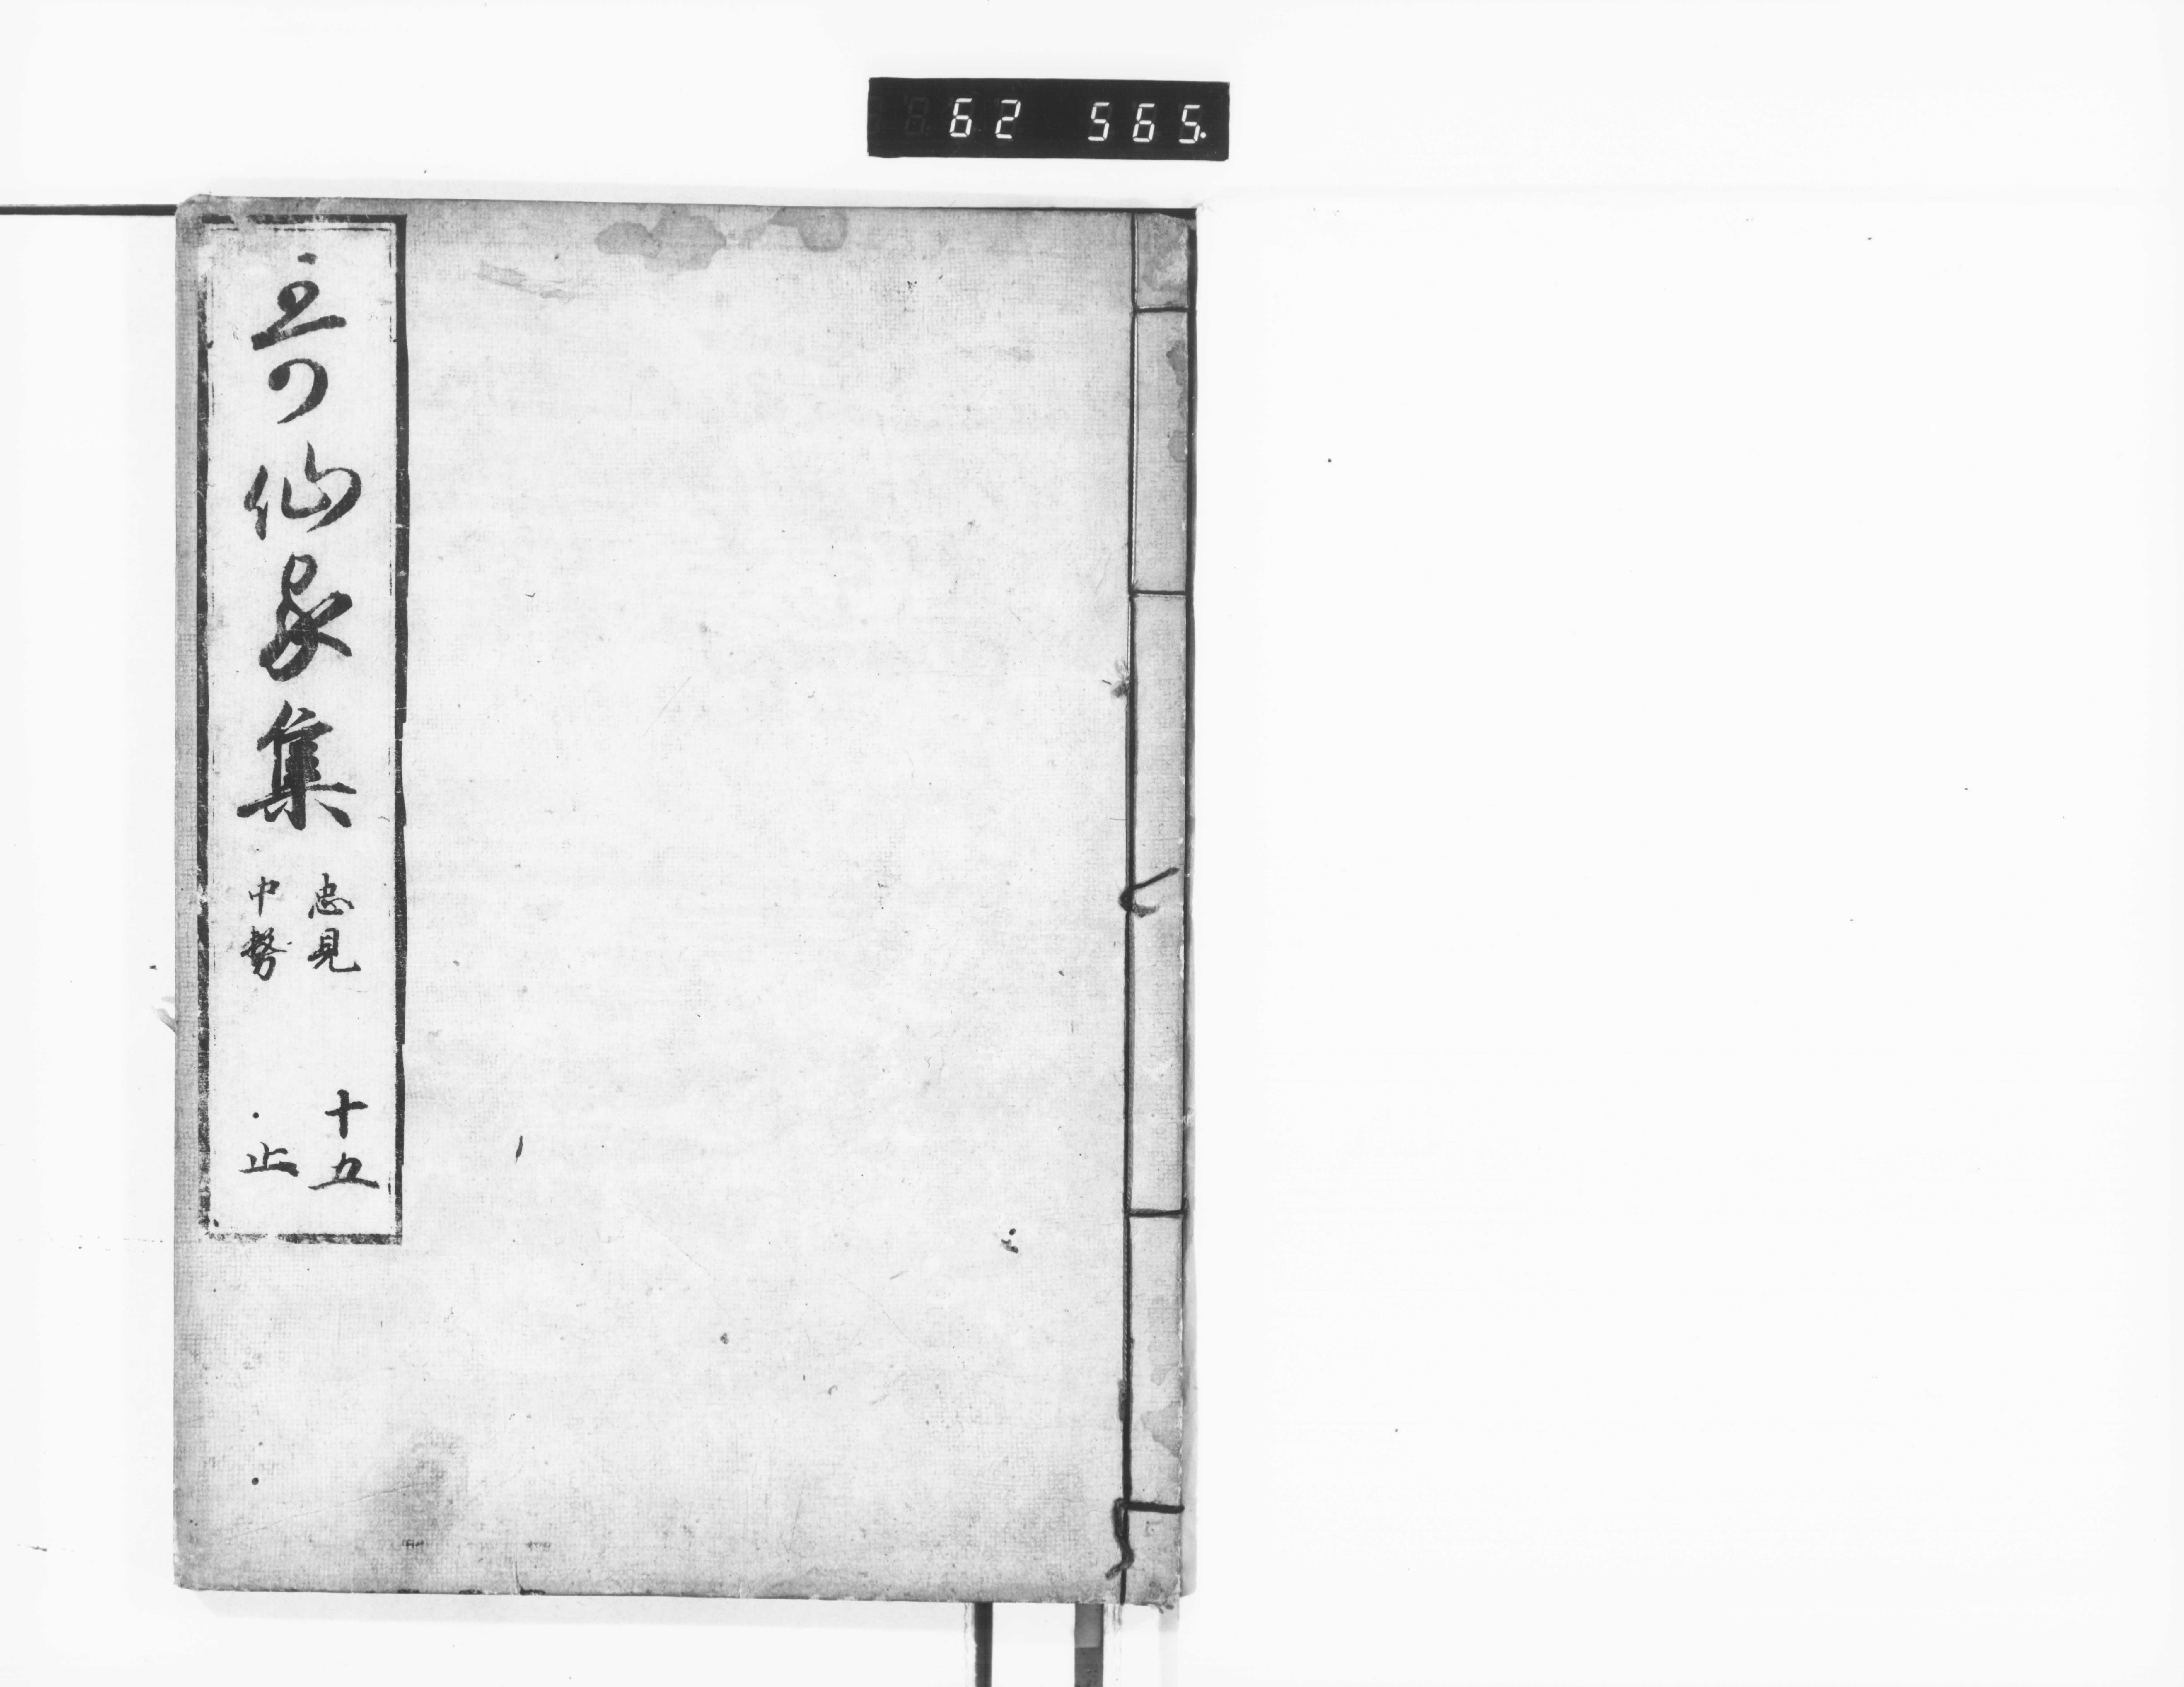 62 565.
哥仙家集
忠見
中務
十五
止